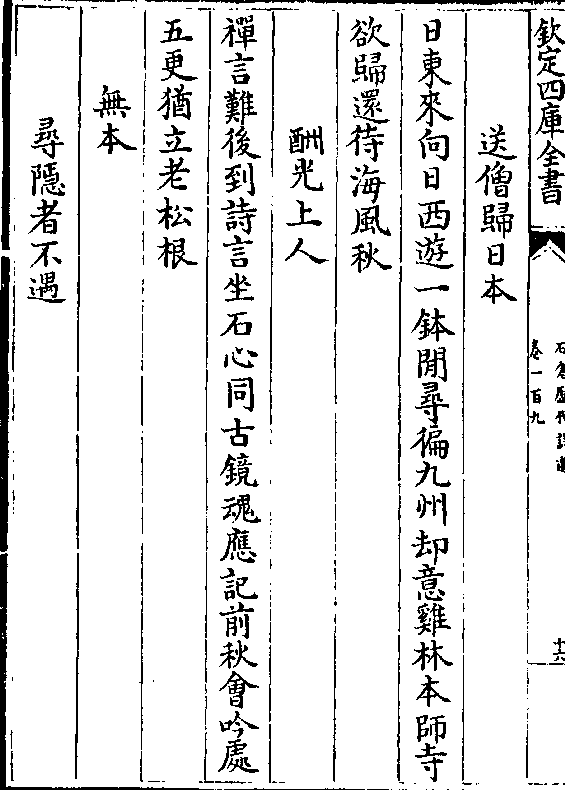 欽定四庫全書
石倉歷代詩選
卷一百九
十六
送僧歸日本
日東來向日西遊一鉢閒尋徧九州却意雞林本師寺
欲歸還待海風秋
酬光上人
禪言難後到詩言坐石心同古鏡魂應記前秋會吟處
五更猶立老松根
無本
尋隱者不遇